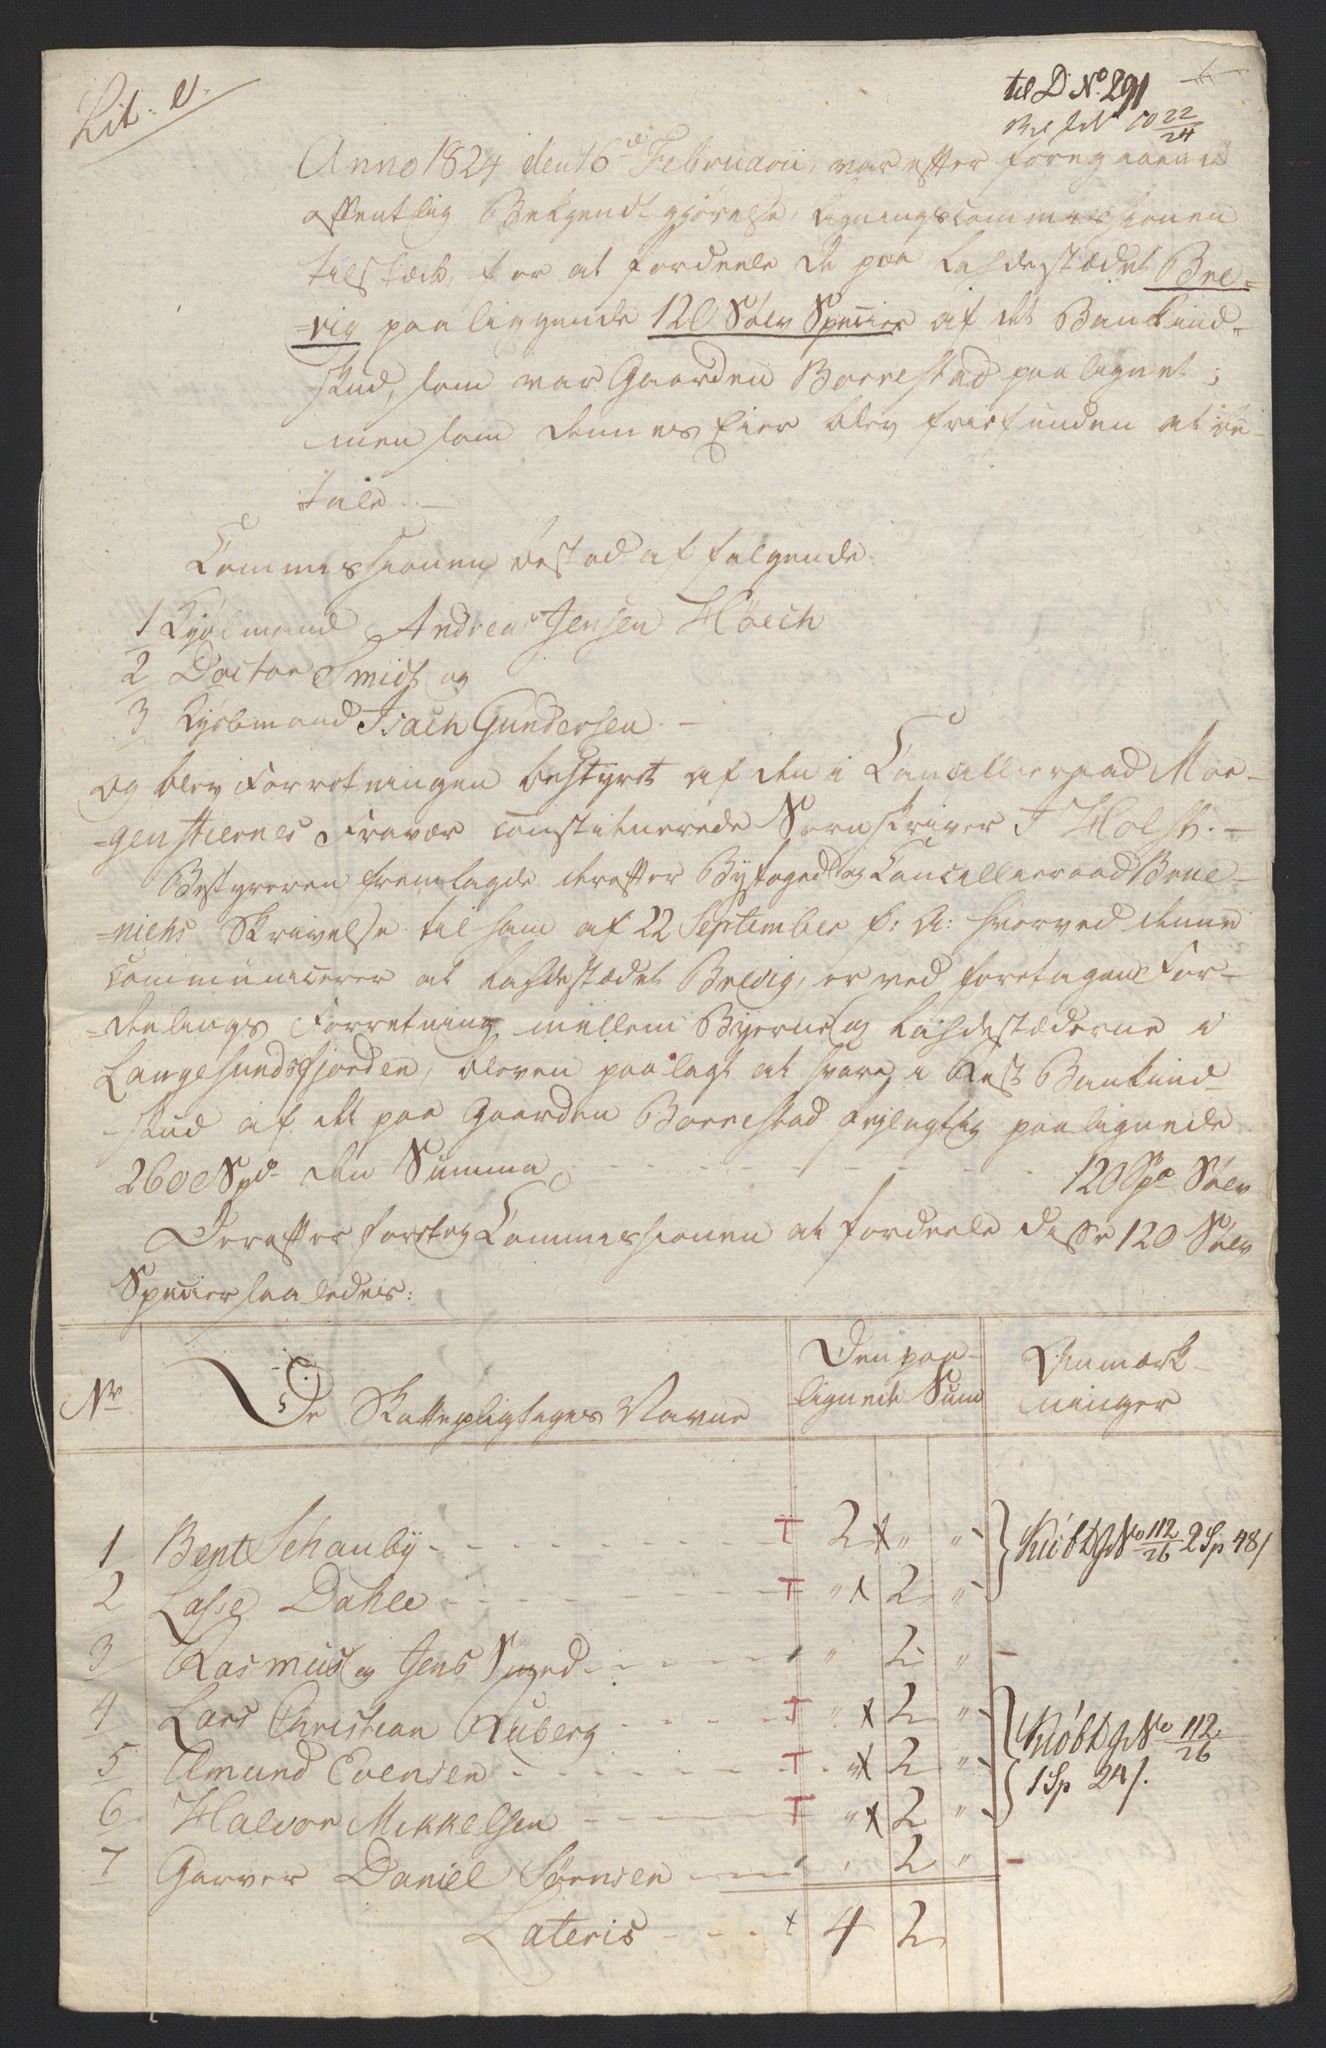 Lit. e.
til D No 291
Bil JN 10 22/24
Anno 1824 den 16de Februarii, var efter foregaaende
offentlig Bekgendtgjørelse, Ligningscommissionen
tilstæde, for at fordeele de paa Ladestædet Bre-
=vig paaliggende 120 Sølv Specier af det Bankind-
skud, som var Gaarden Borrestad paalignet;
men som dennes Eier blev friefunden at be-
tale. -
Commissionen bestod af følgende.
1 Kjøbmand Andreas Jensen Høech
2 Doctor Smidt og
3 Kjøbmand Isach Gundersen. -
og blev Forretningen bestyret af den i Cancellieraad Mor-
=genstiernes Fravær constituerede Sorenskriver J Holst. -
Bestyreren fremlagde derefter Byefoged og Cancellieraad Brue-
=niehs Skrivelse til ham af 22 September f: A: hvorved denne
communicerer at Ladestædet Brevig, er ved foretagen For-
=delings Forretning mellem Byerne og Ladestæderne i
Langesundsfjorden, bleven paalagt at svare i Rest Bankind-
skud af det paa Gaarden Borrestad feylagtig paalignede
2600 Spd. den Summa - - - - - - 120 Spd. Sølv
Derefter foretog Commissionen at fordeele disse 120 Sølv
Specier saaledeis:
Nr De Skattepligtiges Navne Den paa- Anmærk-
lignede Sum ninger
1 Bent Schauby - - - - T 2 x " " } Kiøbt JNo 112/26 2 Sp 48 /
2 Lasse Dahle - - - - T " x 2 "
3 Rasmus og Jens Smed - - - - " 2 " -
4 Lars Christian Ruberg - - - T " x 2 " } Kiøbt JNo 112/26
5 Amund Evensen - - - - T " x 2 " 1 Sp 24 /.
6 Halvor Mikkelsen - - - T " x 2 "
7 Garver Daniel Sørensen - - " 2 " -
Lateris - - - x 4 2